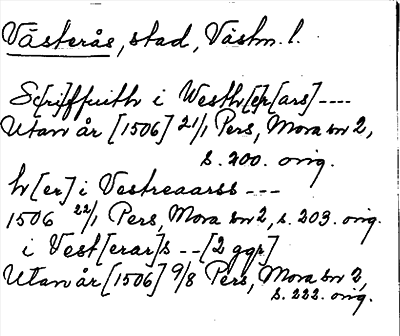 Västerås, stad, Västm. l.
S[cri]ffuith i Westh[er][ars]----
Utan år [1506] 21/1 Pers, Mora sn 2,
s. 200. orig.
h[er] i Vestreaarss ---
1506 22/1 Pers, Mora sn 2, s. 203. orig.
i Vest[erar]s --[2 ggr]
Utan år [1506] 9/8 Pers, Mora sn 2,
s. 222. orig.